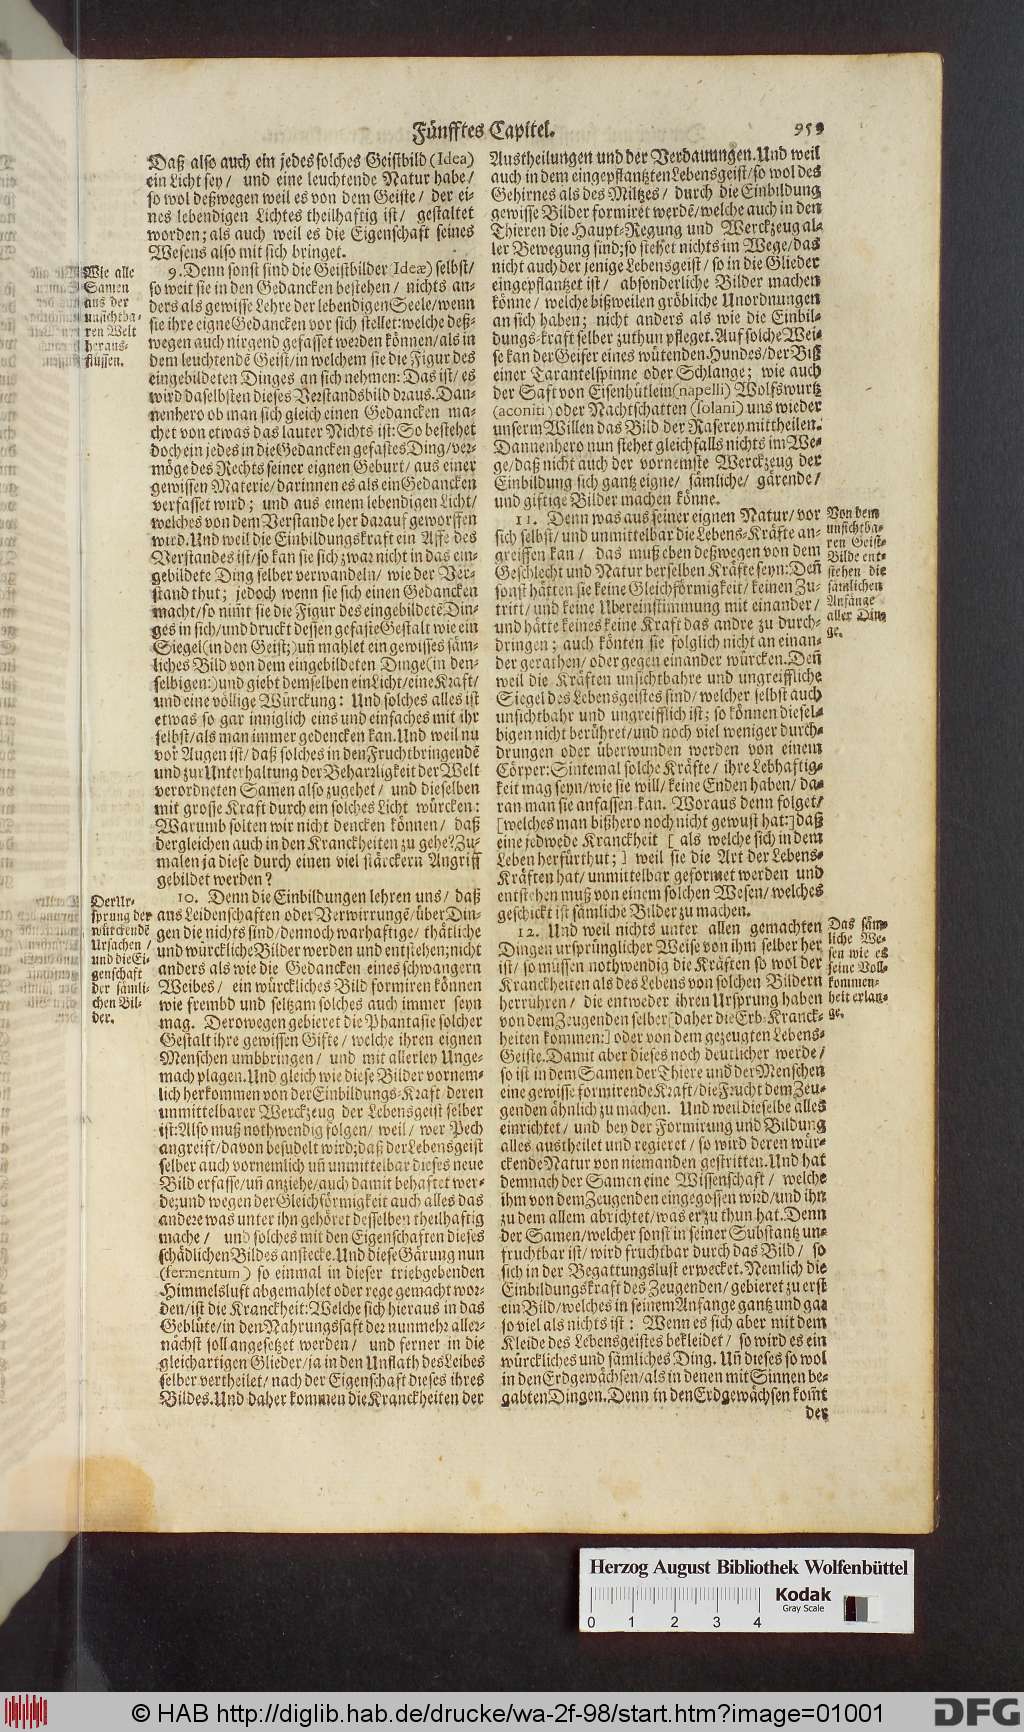 Fünfftes Capitel. 959
Daß also auch ein jedes solches Geistbild (Idea)
ein Licht sey / und eine leuchtende Natur habe /
so wol deßwegen weil es von dem Geiste / der ei-
nes lebendigen Lichtes theilhaftig ist / gestaltet
worden; als auch weil es die Eigenschaft seines
Wesens also mit sich bringet.
Wie alle
Samen
aus der
unsichtba-
ren Welt
heraus-
flüssen.
9. Denn sonst sind die Geistbilder (Ideæ) selbst /
so weit sie in den Gedancken bestehen / nichts an-
ders als gewisse Lehre der lebendigen Seele / wenn
sie ihre eigne Gedancken vor sich stellet: welche deß-
wegen auch nirgend gefasset werden können / als in
dem leuchtendē Geist / in welchem sie die Figur des
eingebildeten Dinges an sich nehmen: Das ist / es
wird daselbsten dieses Verstandsbild draus. Dan-
nenhero ob man sich gleich einen Gedancken ma-
chet von etwas das lauter Nichts ist: So bestehet
doch ein jedes in die Gedancken gefastes Ding / ver-
möge des Rechts seiner eignen Geburt / aus einer
gewissen Materie / darinnen es als ein Gedancken
verfasset wird; und aus einem lebendigen Licht /
welches von dem Verstande her darauf geworffen
wird. Und weil die Einbildungskraft ein Affe des
Verstandes ist / so kan sie sich zwar nicht in das ein-
gebildete Ding selber verwandeln / wie der Ver-
stand thut; jedoch wenn sie sich einen Gedancken
macht / so nim̃t sie die Figur des eingebildetē Din-
ges in sich / und druckt dessen gefaste Gestalt wie ein
Siegel (in den Geist;) uñ mahlet ein gewisses säm-
liches Bild von dem eingebildeten Dinge (in den-
selbigen:) und giebt demselben ein Licht / eine Kraft /
und eine völlige Würckung: Und solches alles ist
etwas so gar inniglich eins und einfaches mit ihr
selbst / als man immer gedencken kan. Und weil nu
vor Augen ist / daß solches in den Fruchtbringendē
und zur Unterhaltung der Beharrligkeit der Welt
verordneten Samen also zugehet / und dieselben
mit grosse Kraft durch ein solches Licht würcken:
Warumb solten wir nicht dencken können / daß
dergleichen auch in den Kranckheiten zu gehe? Zu-
malen ja diese durch einen viel stärckern Angriff
gebildet werden?
Der Ur-
sprung der
würckendē
Ursachen /
und die Ei-
genschaft
der sämli-
chen Bil-
der.
10. Denn die Einbildungen lehren uns / daß
aus Leidenschaften oder Verwirrungē / über Din-
gen die nichts sind / dennoch warhaftige / thätliche
und würckliche Bilder werden und entstehen; nicht
anders als wie die Gedancken eines schwangern
Weibes / ein würckliches Bild formiren können
wie frembd und seltzam solches auch immer seyn
mag. Derowegen gebieret die Phantasie solcher
Gestalt ihre gewissen Gifte / welche ihren eignen
Menschen umbbringen / und mit allerley Unge-
mach plagen. Und gleich wie diese Bilder vornem-
lich herkommen von der Einbildungs-Kraft deren
unmittelbarer Werckzeug der Lebensgeist selber
ist: Also muß nothwendig folgen / weil / wer Pech
angreift / davon besudelt wird; daß der Lebensgeist
selber auch vornemlich uñ unmittelbar dieses neue
Bild erfasse / uñ anziehe / auch damit behaftet wer-
de; und wegen der Gleichförmigkeit auch alles das
andere was unter ihn gehöret desselben theilhaftig
mache / und solches mit den Eigenschaften dieses
schädlichen Bildes anstecke. Und diese Gärung nun
(fermentum) so einmal in dieser triebgebenden
Himmelsluft abgemahlet oder rege gemacht wor-
den / ist die Kranckheit: Welche sich hieraus in das
Geblüte / in den Nahrungssaft der nunmehr aller-
nächst soll angesetzet werden / und ferner in die
gleichartigen Glieder / ja in den Unflath des Leibes
selber vertheilet / nach der Eigenschaft dieses ihres
Bildes. Und daher kommen die Kranckheiten der
Austheilungen und der Verdauungen. Und weil
auch in dem eingepflantzten Lebensgeist / so wol des
Gehirnes als des Miltzes / durch die Einbildung
gewisse Bilder formiret werdē / welche auch in den
Thieren die Haupt-Regung und Werckzeug al-
ler Bewegung sind; so stehet nichts im Wege / das
nicht auch der jenige Lebensgeist / so in die Glieder
eingepflantzet ist / absonderliche Bilder machen
könne / welche bißweilen gröbliche Unordnungen
an sich haben; nicht anders als wie die Einbil-
dungs-kraft selber zuthun pfleget. Auf solche Wei-
se kan der Geifer eines wütenden Hundes / der Biß
einer Tarantelspinne oder Schlange; wie auch
der Saft von Eisenhütlein (napelli) Wolfswurtz
(aconiti) oder Nachtschatten (solani) uns wieder
unserm Willen das Bild der Raserey mittheilen.
Dannenhero nun stehet gleichfalls nichts im We-
ge / daß nicht auch der vornemste Werckzeug der
Einbildung sich gantz eigne / sämliche / gärende /
und giftige Bilder machen könne.
11. Denn was aus seiner eignen Natur / vor
sich selbst / und unmittelbar die Lebens-Kräfte an-
greiffen kan / das muß eben deßwegen von dem
Geschlecht und Natur derselben Kräfte seyn: Deñ
sonst hätten sie keine Gleichförmigkeit / keinen Zu-
tritt / und keine Übereinstimmung mit einander /
und hätte keines keine Kraft das andre zu durch-
dringen; auch könten sie folglich nicht an einan-
der gerathen / oder gegen einander würcken. Deñ
weil die Kräften unsichtbahre und ungreiffliche
Siegel des Lebensgeistes sind / welcher selbst auch
unsichtbahr und ungreifflich ist; so können diesel-
bigen nicht berühret / und noch viel weniger durch-
drungen oder überwunden werden von einem
Cörper: Sintemal solche Kräfte / ihre Lebhaftig-
keit mag seyn / wie sie will / keine Enden haben / da-
ran man sie anfassen kan. Woraus denn folget /
[welches man bißhero noch nicht gewust hat:] daß
eine jedwede Kranckheit [ als welche sich in dem
Leben herfürthut; ] weil sie die Art der Lebens-
Kräften hat / unmittelbar geformet werden und
entstehen muß von einem solchen Wesen / welches
geschickt ist sämliche Bilder zu machen.
Von dem
unsichtba-
ren Geist-
Bilde ent-
stehen die
sämlichen
Anfänge
aller Din-
ge.
12. Und weil nichts unter allen gemachten
Dingen ursprünglicher Weise von ihm selber her
ist / so müssen nothwendig die Kräften so wol der
Kranckheiten als des Lebens von solchen Bildern
herrühren / die entweder ihren Ursprung haben
von dem Zeugenden selber [daher die Erb-Kranck-
heiten kommen:] oder von dem gezeugten Lebens-
Geiste. Damit aber dieses noch deutlicher werde /
so ist in dem Samen der Thiere und der Menschen
eine gewisse formirende Kraft / die Frucht dem Zeu-
genden ähnlich zu machen. Und weil dieselbe alles
einrichtet / und bey der Formirung und Bildung
alles austheilet und regieret / so wird deren wür-
ckende Natur von niemanden gestritten. Und hat
demnach der Samen eine Wissenschaft / welche
ihm von dem Zeugenden eingegossen wird / und ihn
zu dem allem abrichtet / was er zu thun hat. Denn
der Samen / welcher sonst in seiner Substantz un-
fruchtbar ist / wird fruchtbar durch das Bild / so
sich in der Begattungslust erwecket. Nemlich die
Einbildungskraft des Zeugenden / gebieret zu erst
ein Bild / welches in seinem Anfange gantz und gar
so viel als nichts ist: Wenn es sich aber mit dem
Kleide des Lebensgeistes bekleidet / so wird es ein
würckliches und sämliches Ding. Uñ dieses so wol
in den Erdgewächsen / als in denen mit Sinnen be-
gabten Dingen. Denn in den Erdgewächsen kom̃t
der
Das säm-
liche We-
sen wie es
seine Voll-
kommen-
heit erlan-
ge.
Herzog August Bibliothek Wolfenbüttel
Kodak
Gray Scale
0 1 2 3 4
© HAB http://diglib.hab.de/drucke/wa-2f-98/start.htm?image=01001
DFG